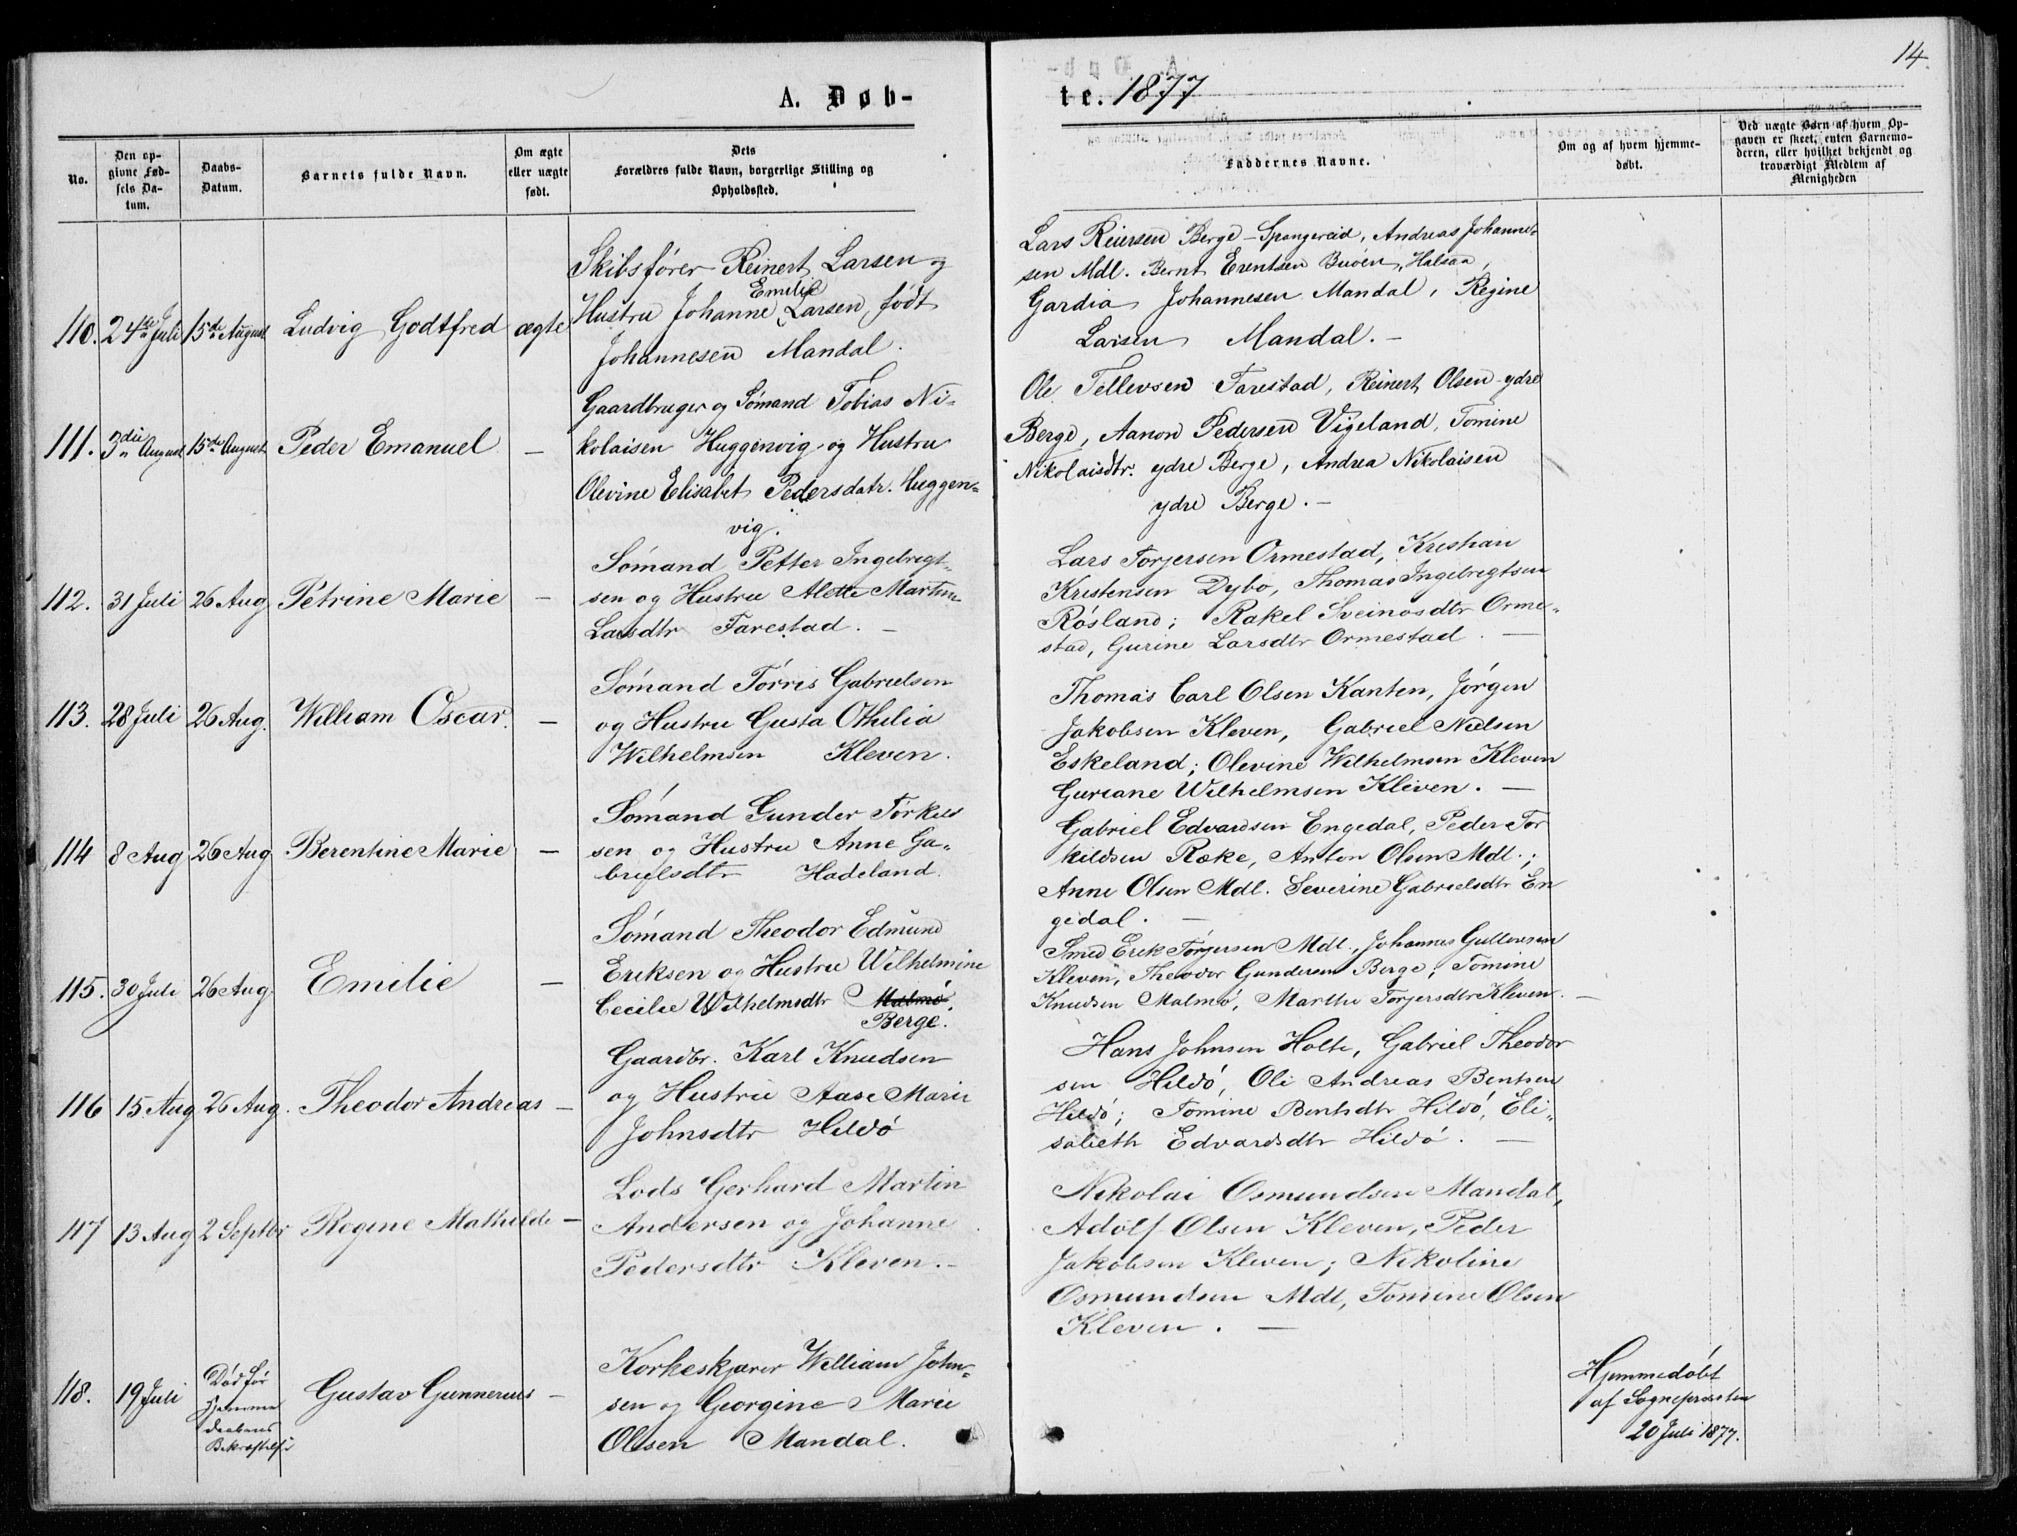 14.
A. Døb-
te. 1877
No.
Den op-
givne Fød-
sels Da-
tum.
Daabs-
Datum.
Barnets fulde Navn.
Om ægte
eller uægte
født.
Dets
Forældres fulde Navn, borgerlige Stilling og
Opholdssted.
Faddernes Navne.
Om og af hvem hjemme-
døbt.
Ved uægte Barn af hvem Op-
gaven er skeet, enten Barnemo-
deren, eller hvilket bekjendt og
troværdigt Medlem af
Menigheden
110. 24de Juli 15de August Ludvig Godtfred ægte
Skibsfører Reinert Larsen og
Emilie
Hustru Johanne Larsen, født
Johannesen Mandal.
Lars Reiersen Berge - Spangereid, Andreas Johanne-
sen Mdl. Bernt Erentsen Buøen, Halsaa,
Gardia Johannesen Mandal, Regine
Larsen Mandal. -
111. 3die August 15de August Peder Emanuel -
Gaardbruger og Sømand Tobias Ni-
kolaisen Huggenvig og Hustru
Olevine Elisabet Pedersdatr. Huggen-
vig.
Ole Tellevsen Farestad, Reinert Olsen ydre
Berge, Aanon Pedersen Vigeland, Tomine
Nikolaisdtr. ydre Berge, Andrea Nikolaisen
ydre Berge. -
112. 31 Juli 26 Aug Petrine Marie -
Sømand Petter Ingebregt-
sen og Hustru Alette Martine
Larsdtr Farestad. -
Lars Torjersen Ormestad, Kristian
Kristensen Dybo, Thomas Ingebregtsen
Røsland; Rakel Sveinosdtr Orme-
stad, Gurine Larsdtr Ormestad. -
113. 28 Juli 26 Aug. William Oscar. -
Sømand Tørris Gabrielsen
og Hustru Gusta Othilia
Wilhelmsen Kleven.
Thomas Carl Olsen Kanten, Jørgen
Jakobsen Kleven, Gabriel Nielsen
Eskeland; Olevine Wilhelmsen Kleven
Guriane Wilhelmsen Kleven. -
114 8 Aug 26 Aug Berentine Marie -
Sømand Gunder Torkels
sen og Hustru Anne Ga-
brielsdtr Hadeland.
Gabriel Edvardsen Engedal, Peder Tor
kildsen Røke, Anton Olsen Mdl.;
Anne Olsen Mdl. Severine Gabrielsdtr En
gedal. -
115. 30 Juli 26 Aug. Emilie -
Sømand Theodor Edmund
Eriksen og Hustru Wilhelmine
Cecilie Wilhelmsdtr Malmø
Berge.
Smed Erik Torgersen Mdl., Johannes Gullovsen
Kleven, Theodor Gundersen Berge; Tomine
Knudsen Malmø, Marthe Torjersdtr Kleven. -
116 15 Aug 26 Aug. Theodor Andreas -
Gaardbr. Karl Knudsen
og Hustru Aase Marie
Johnsdtr Hildø
Hans Johnsen Holte, Gabriel Theodor
sen Hildø, Ole Andreas Bentsen
Hildø; Tomine Bentsdtr Hildø, Eli-
sabeth Edvardsdtr Hildø. -
117 13 Aug 2 Septbr Regine Mathilde -
Lods Gerhard Martin
Andersen og Johanne
Pedersdtr Kleven. -
Nikolai Osmundsen Mandal,
Adolf Olsen Kleven, Peder
Jakobsen Kleven; Nikoline
Osmundsen Mdl, Tomine Olsen
Kleven. -
118. 19 Juli
Død før
Hjemme
daabens
Bekræftelse
Gustav Gunnerius -
Korkeskjærer William John-
sen og Georgine Marie
Olsen Mandal.
Hjemmedøbt
af Sognepresten
20 Juli 1877.